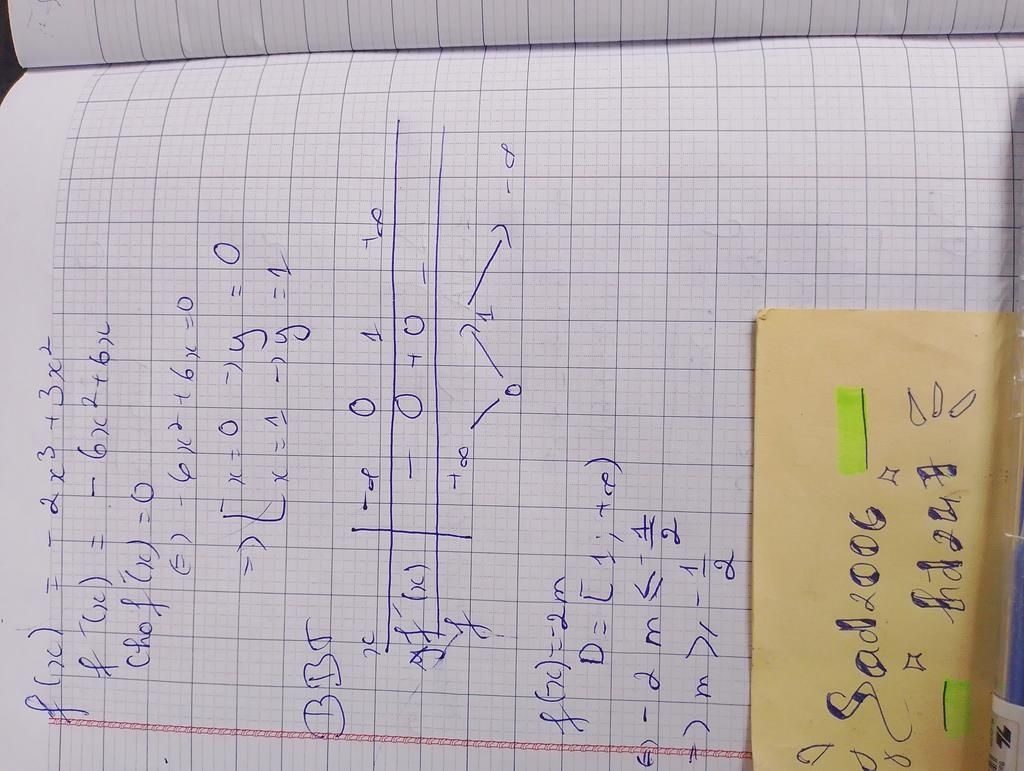 f(x) = -2x³ + 3x²
f'(x) = -6x² + 6x
Cho f'(x) = 0
⇔ -6x² + 6x = 0
=> [ x = 0 → y = 0
[ x = 1 → y = 1
BBT
x | -∞ 0 1 +∞
f'(x) | - 0 + 0 -
y +∞ 0 1 -∞
f(x) = -2m
D = [1; +∞)
⇔ -2m ≤ -1/2
=> m ≥ -1/2
Sad2006
hd247